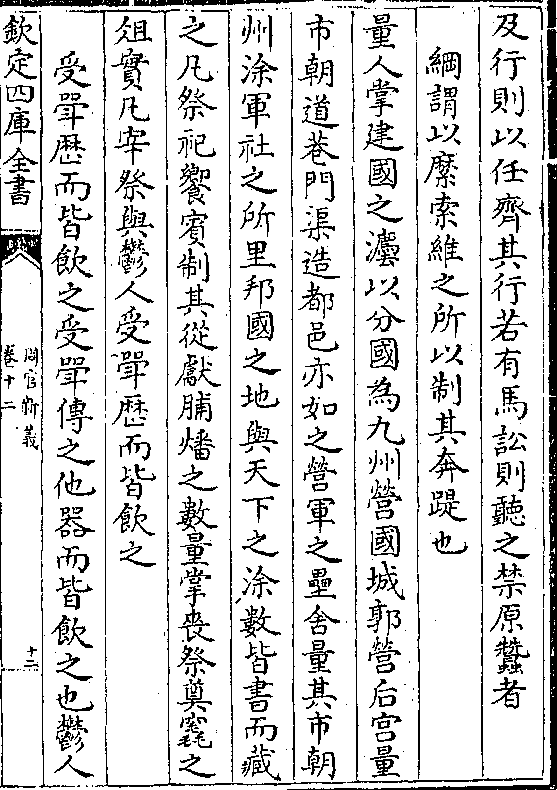 及行則以任齊其行若有馬訟則聽之禁原蠶者
綱謂以縻索維之所以制其奔踶也
量人掌建國之灋以分國為九州營國城郭營后宫量
市朝道巷門渠造都邑亦如之營軍之壘舍量其市朝
州涂軍社之所里邦國之地與天下之涂數皆書而藏
之凡祭祀饗賓制其從獻脯燔之數量掌喪祭奠竁之
俎實凡宰祭與鬱人受斝歴而皆飲之
受斝歴而皆飲之受斝傳之他器而皆飲之也鬱人
欽定四庫全書
周官新義
卷十二
十二